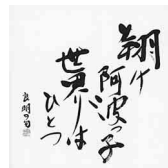 翔ケ
阿波っ子
世界は
ひとつ